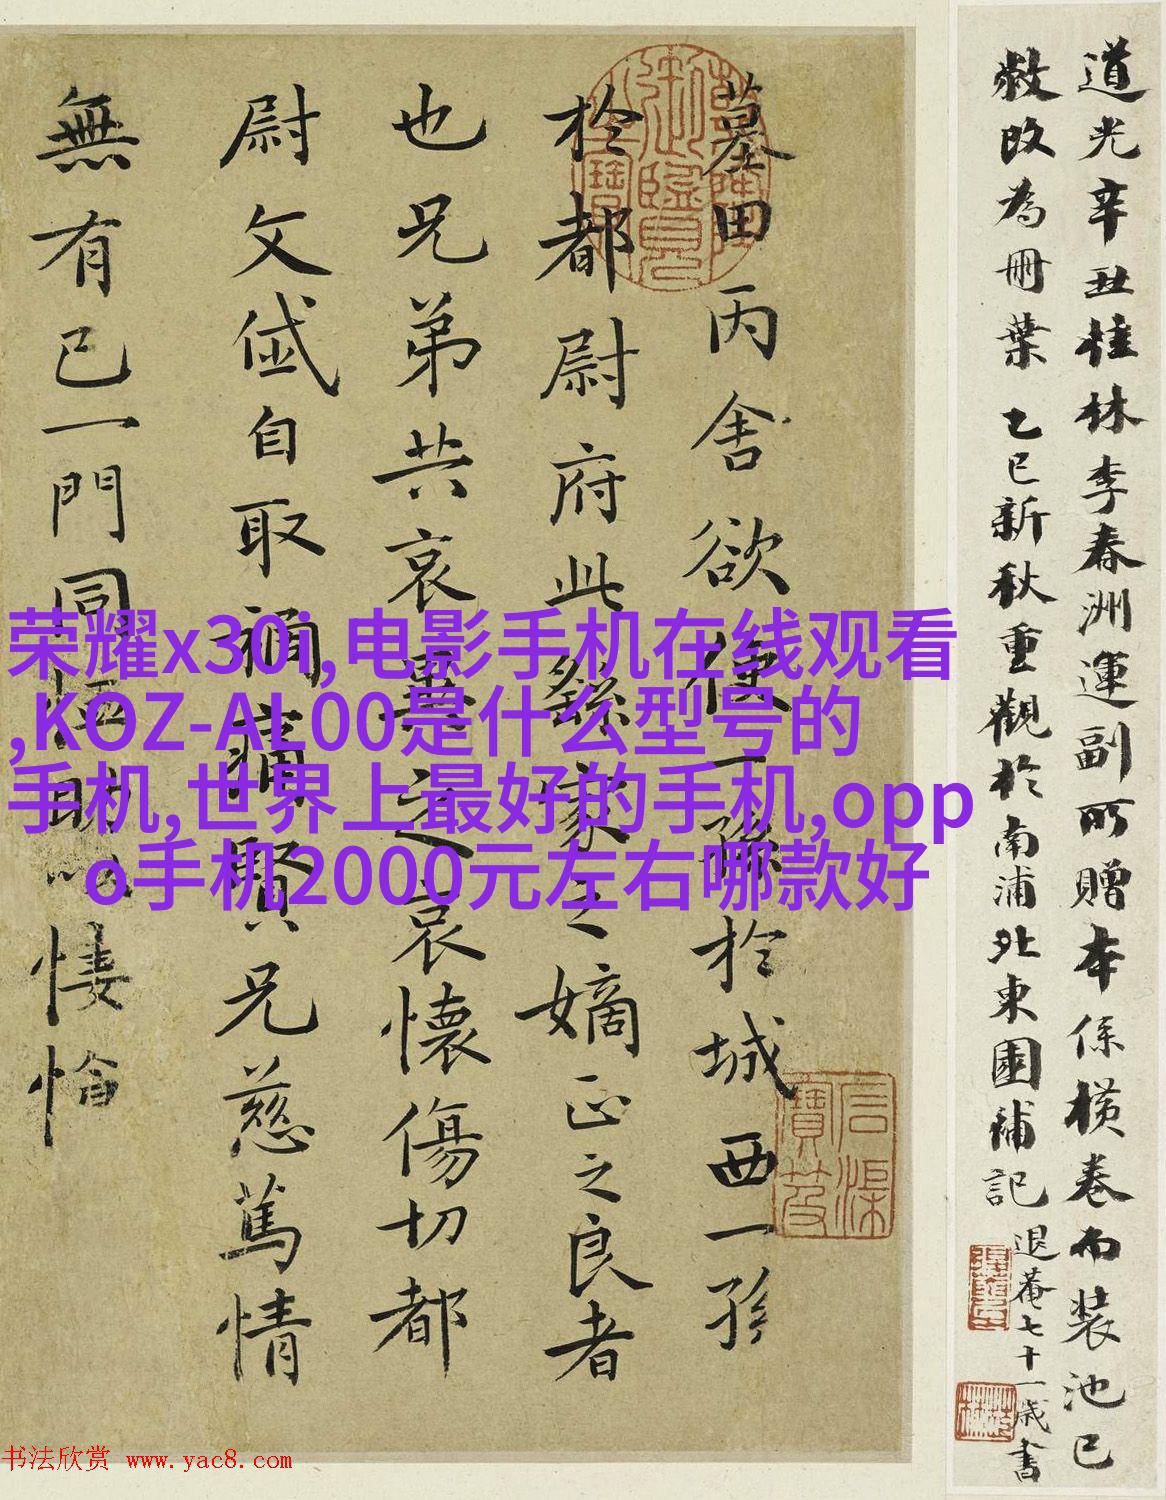 墓田丙舍欲使一孫於城西一孫
於都尉府此繇家之嫡正之良者
也兄弟共哀異之哀懷傷切都
尉文岱自取禍痛賢兄慈篤情
無有已一門同恤助以悽愴
道光辛丑桂林李春洲運副所贈本係橫卷而装池已
敝改為冊葉 乙巳新秋重觀於南浦北東園補記
退菴七十一歲書
荣耀x30i,电影手机在线观看
,KOZ-AL00是什么型号的
手机,世界上最好的手机,opp
o手机2000元左右哪款好
书法欣赏 www.yac8.com